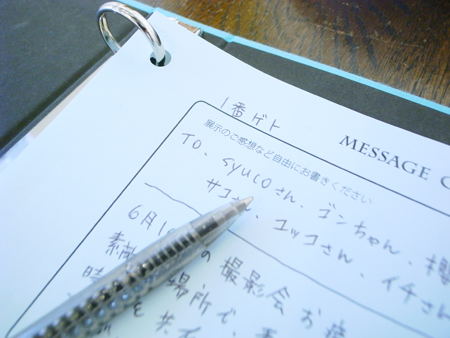 1番ゲト
MESSAGE
展示のご感想など自由にお書きください
TO、syucoさん、ゴンちゃん、櫻
サコさん、ユッコさん、イチさん
6月1 の撮影会お疲
素 場所で、
時 を共